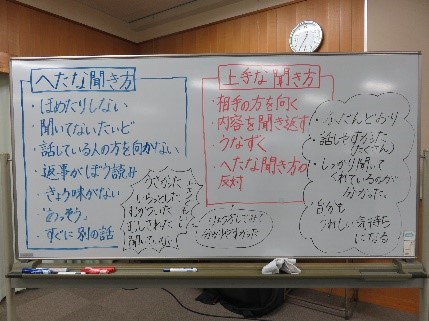 へたな聞き方
・ほめたりしない
・聞いてないたいど
・話している人の方を向かない
・返事がぼう読み
・きょう味がない
・すぐに別の話
上手な聞き方
・相手の方を向く
・内容を聞き返す
・うなずく
・へたな聞き方の
反対
・ふだんどおり
話しやすかった
(たくさん)
・しっかり聞いて
くれているのが
分かった。
・自分も
うれしい気持ち
になる
いらっとした
むしされた
分かりやすかった